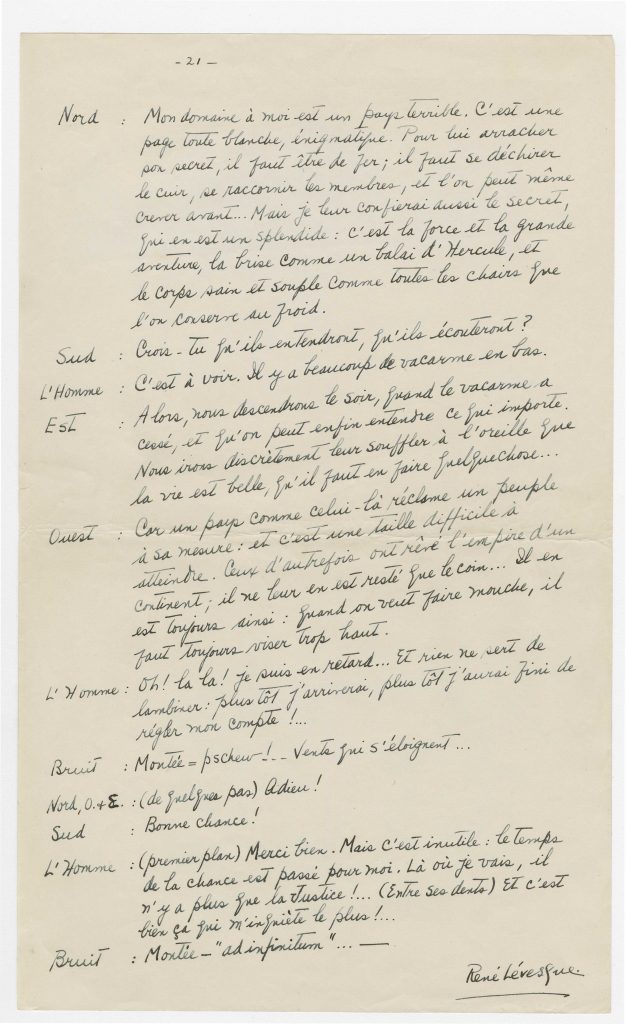 - 21 -
Nord : Mon domaine à moi est un pays terrible. C'est une
page toute blanche, énigmatique. Pour lui arracher
son secret, il faut être de fer; il faut se déchirer
le cuir, se raccornir les membres, et l'on peut même
crever avant... Mais je leur confierai aussi le secret,
qui en est un splendide : c'est la force et la grande
aventure, la brise comme un balai d'Hercule, et
le corps sain et souple comme toutes les chairs que
l'on conserve au froid.
Sud : Crois-tu qu'ils entendront, qu'ils écouteront ?
L'Homme : C'est à voir. Il y a beaucoup de vacarme en bas.
Est : Alors, nous descendrons le soir, quand le vacarme a
cessé, et qu'on peut enfin entendre ce qui importe.
Nous irons discrètement leur souffler à l'oreille que
la vie est belle, qu'il faut en faire quelquechose...
Ouest : Car un pays comme celui-là réclame un peuple
à sa mesure : et c'est une taille difficile à
atteindre. Ceux d'autrefois ont rêvé l'empire d'un
continent; il ne leur en est resté que le coin... Il en
est toujours ainsi : quand on veut faire mouche, il
faut toujours viser trop haut.
L'Homme : Oh! la la! je suis en retard... Et rien ne sert de
lambiner : plus tôt j'arriverai, plus tôt j'aurai fini de
régler mon compte !...
Bruit : Montée = pschew !... Vents qui s'éloignent...
Nord, O. & E. : (de quelques pas) Adieu !
Sud : Bonne chance !
L'Homme : (premier plan) Merci bien. Mais c'est inutile : le temps
de la chance est passé pour moi. Là où je vais, il
n'y a plus que la Justice !... (Entre ses dents) Et c'est
bien ça qui m'inquiète le plus !...
Bruit : Montée - "ad infinitum"... —
René Lévesque.